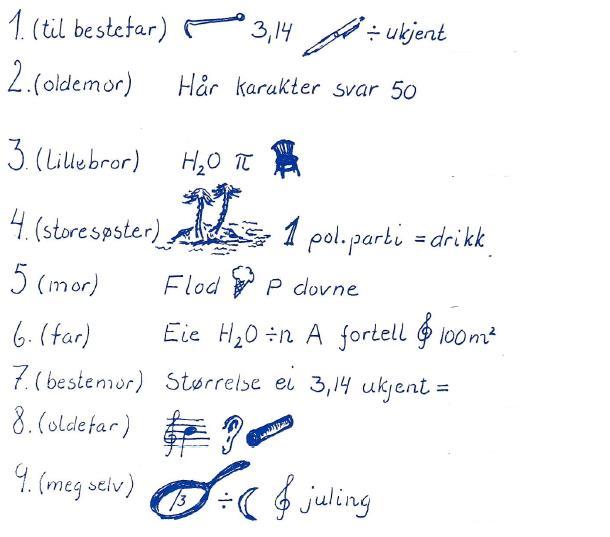 1. (til bestefar) 3,14 ÷ ukjent
2. (oldemor) Hår karakter svar 50
3. (Lillebror) H₂O π
4. (storesøster) 1 pol. parti = drikk
5 (mor) Flod P dovne
6. (far) Eie H₂O ÷n A fortell 100m²
7. (bestemor) Størrelse ei 3,14 ukjent =
8. (oldefar)
9. (meg selv) /3 ÷ juling